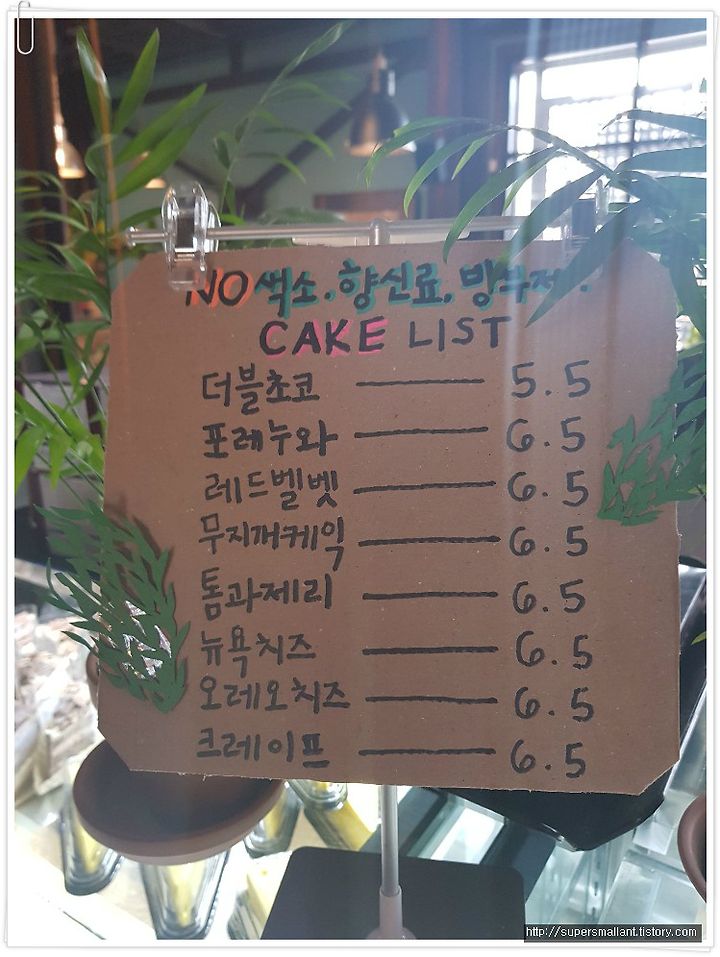 NO 색소.향신료.방부제!
CAKE LIST
더블초코 5.5
포레누와 6.5
레드벨벳 6.5
무지개케익 6.5
톰과제리 6.5
뉴욕치즈 6.5
오레오치즈 6.5
크레이프 6.5
http://supersmallant.tistory.com